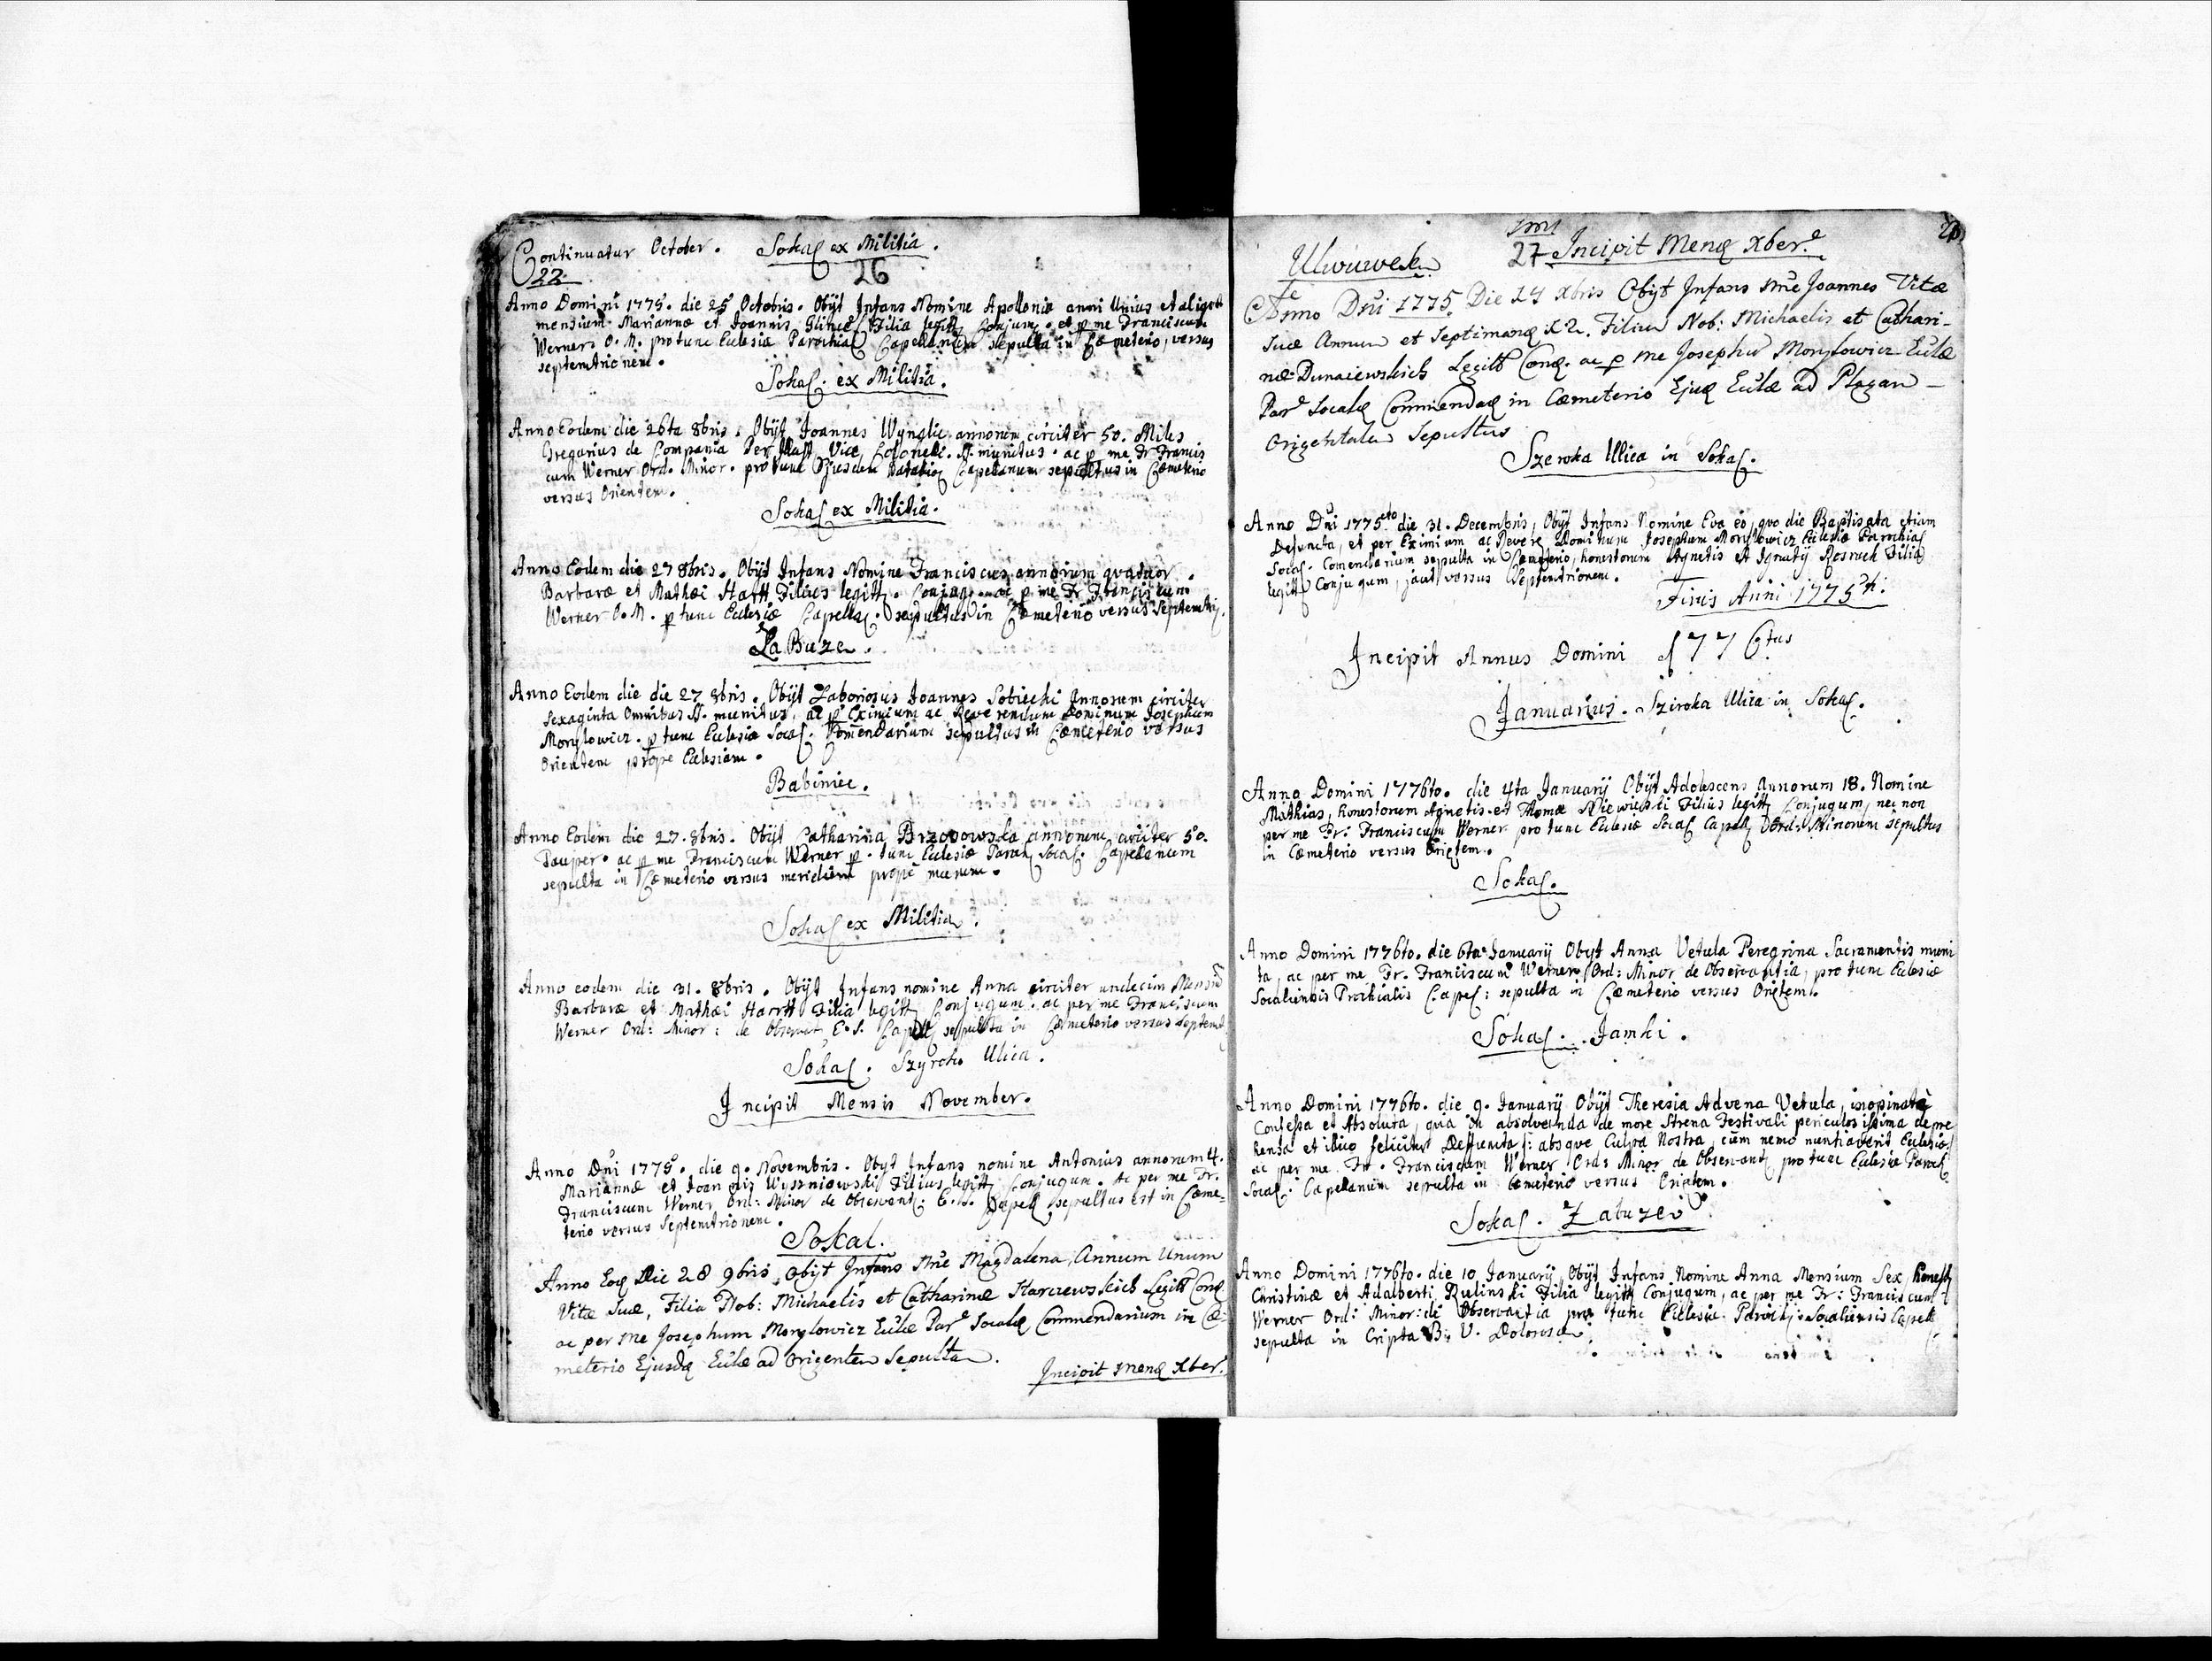 Continuatur October. Sokal ex Militia.
22. 26
Anno Domini 1775. die 25 Octobris. Obijt Infans Nomine Apollonia anni Unius et aliquot
mensium Mariannæ et Joannis Filia legitt Conjum. et p me Franciscum
Werner O. M. pro tunc Eclesiæ Parochial Capellanum sepulta in Cæmeterio, versus
septemtrionem.
Sokal. ex Militia.
Anno Eodem die 26ta 8bris. Obijt Joannes annorum circiter 50. Miles
Gregarius de Compania Per Illust Vice Colonell. SS. munitus. ac p me Fr Francis
cum Werner Ord. Minor. pro tunc Ejusdem Capellanum sepultus in Cæmeterio
versus Orientem.
Sokal ex Militia.
Anno Eodem die 27 8bris. Obijt Infans Nomine Franciscus annorum quatuor.
Barbaræ et Mathæi Hartt Filius legitt. Conjug. ac p me Fr Franciscum
Werner O. M. p tunc Eclesiæ Capella. sepultus in Cæmeterio versus Septemtri.
Za Buze.
Anno Eodem die die 27 8bris. Obijt Laboriosus Joannes Sobiecki Annorum circiter
sexaginta Omnibus SS. munitus, ac p Eximium ac Reverendum Dominum Josephum
Morylowicz. p tunc Eclesiæ Socal. Comendarium sepultus in Cæmeterio versus
Orientem prope Eclesiam.
Babiniec.
Anno Eodem die 27. 8bris. Obijt Catharina Brzozowska annorum circiter 50.
Pauper. ac p me Franciscum Werner p. tunc Eclesiæ Paroch Socal. Capellanum
sepulta in Cæmeterio versus meridiem prope murum.
Sokal ex Militia.
Anno eodem die 31. 8bris. Obijt Infans nomine Anna circiter undecim Mensiu
Barbaræ et Mathæi Hartt Filia legitt Conjugum. ac per me Franciscum
Werner Ord: Minor: de Observat E. S. Capell sepulta in Cæmeterio versus Septemt
Sokal. Szyroka Ulica.
Incipit Mensis November.
Anno Dni 1775. die 9. Novembris. Obijt Infans nomine Antonius annorum 4.
Mariannæ et Joannis Wyszniowski Filius legitt Conjugum. Ac per me Fr.
Franciscum Werner Ord: Minor de Observant: E. S. Capell sepultus est in Cæme-
terio versus Septemtrionem.
Sokal.
Anno Eoq Die 28 9bris, Obijt Infans Nne Magdalena, Annum Unum
Vitæ Suæ, Filia Nob: Michaelis et Catharinæ Harczewskich Legitt Conq
ac per me Josephum Morylowicz Eclæ Par Socalq Commendarium in Cæ-
meterio Ejusdq Eclæ ad Origentem Sepulta.
Incipit menq Xber.
Ulwuwek
27 Incipit Menq Xber.
Anno Dni 1775 Die 24 Xbris Obijt Infans Nne Joannes Vitæ
Suæ Annum et Septimanq X2. Filius Nob: Michaelis et Cathari-
næ Dunaiewskich Legitt Conq. ac p me Josephu Morylowicz Eclæ
Par Socalq Commendaq in Cæmeterio Ejuq Eclæ ad Plagan
Origentalem Sepultus
Szeroka Ulica in Sokal.
Anno Dni 1775to die 31. Decembris, Obijt Infans Nomine Eva eo, quo die Baptisata etiam
Defuncta, et per Eximium ac Revere Dominum Josephum Morylowicz Eclesiæ Parochial
Socal. Comendarium sepulta in Cæmeterio, honestorum Agnetis et Ignatij Filia
legitt Conjugum, jacet versus Septemtrionem.
Finis Anni 1775ti.
Incipit Annus Domini 1776tus
Januarius. Sziroka Ulica in Sokal.
Anno Domini 1776to. die 4ta Januarij Obijt Adolescens Annorum 18. Nomine
Mathias, honestorum Agnetis et Thomæ Filius legitt Conjugum, nec non
per me Fr: Franciscum Werner pro tunc Eclesiæ Socal Capell Ord: Minorum sepultus
in Cæmeterio versus Orietem.
Sokal.
Anno Domini 1776to. die 6ta Januarij Obijt Anna Vetula Peregrina Sacramentis muni
ta, ac per me Fr. Franciscum Werner Ord: Minor de Observantia, pro tunc Eclesiæ
Socaliensis Capel: sepulta in Cæmeterio versus Orietem.
Sokal. Jamki.
Anno Domini 1776to. die 9. Januarij Obijt Theresia Advena Vetula, inopinatè
Confessa et Absoluta, qua in absolvenda de more Strena Festivali periculosissima depre
hensa et ilico feliciter Deffuncta /: absque Culpa Nostra, cum nemo nuntiaverit Eclesiæ/
ac per me Fr. Franciscum Werner Ord: Minor de Observant pro tunc Eclesiæ Paroch
Socal. Capellanum sepulta in Cemeterio versus Orietem.
Sokal. Zabuze
Anno Domini 1776to. die 10 Januarij Obijt Infans Nomine Anna Mensium Sex, honest
Christinæ et Adalberti Rulinski Filia legitt Conjugum, ac per me Fr: Franciscum
Werner Ord: Minor: de Observantia pro tunc Eclesiæ Socaliensis Capell
sepulta in Cripta B. V. Dolorosæ.